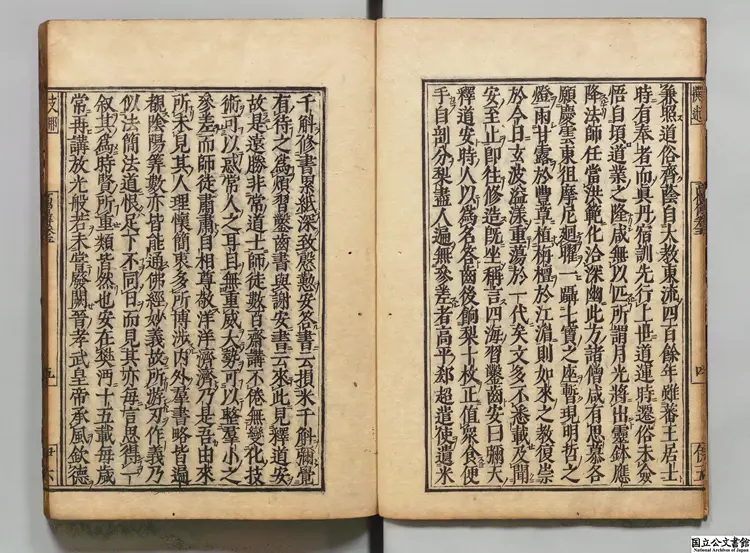 兼照道俗齊蔭自大教東流四百餘年雖蕃王居士
時有奉者而眞丹宿訓先行上世道運時遷俗未僉
悟自頃道業之隆咸無以匹所謂月光將出靈鉢應
降法師任當洪範化洽深幽此方諸僧咸有思慕各
願慶雲東徂摩尼廻曜一躡七寶之座暫現明哲之
燈雨甘露於豐草植栴檀於江湄則如來之教復崇
於今日玄波溢漾重蕩於一代矣文多不悉載及聞
安至止即往修造旣坐稱言四海習鑿齒安曰彌天
釋道安時人以為名答齒後餉梨十枚正值衆食便
手自剖分梨盡人遍無參差者高平郄超遣使遺米
千斛修書累紙深致慇懃安答書云損米千斛彌覺
有待之為煩習鑿齒書與謝安書云來此見釋道安
故是遠勝非常道士師徒數百齋講不倦無變化技
術可以惑常人之耳目無重威大勢可以整羣小之
參差而師徒肅肅自相尊敬洋洋濟濟乃是吾由來
所未見其人理懷簡衷多所博涉內外羣書略皆遍
覩陰陽筭數亦皆能通佛經妙義故所游刃作義乃
似法簡法道恨足下不同日而見其亦每言思得一
叙其為時賢所重類皆然也安在樊沔十五載每歲
常再講放光般若未嘗廢闕晉孝武皇帝承風欽德
国立公文書館
National Archives of Japan